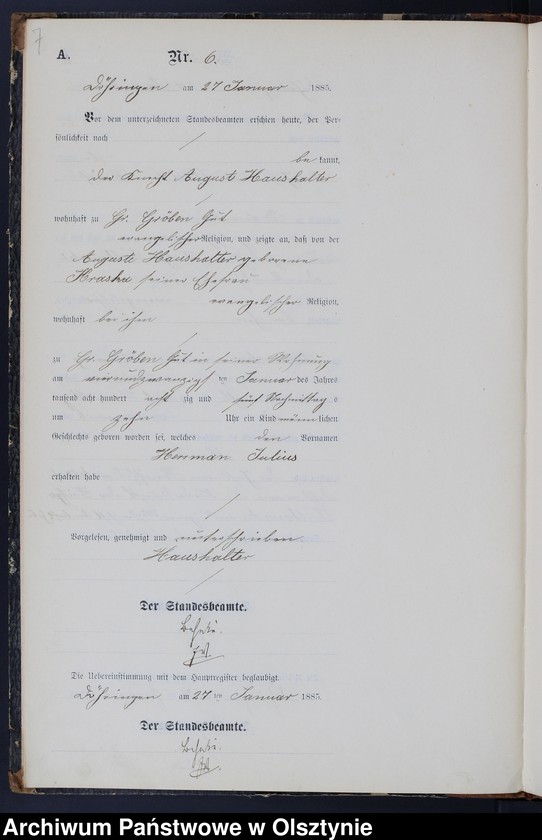 7
A.
Nr. 6.
Döhringen am 27 Januar 1885.
Vor dem unterzeichneten Standesbeamten erschien heute, der Per-
sönlichkeit nach
be kannt,
der Knecht August Haushalter
wohnhaft zu Gr. Gröben Gut
evangelischer Religion, und zeigte an, daß von der
Auguste Haushalter geborene
seiner Ehefrau
evangelischer Religion,
wohnhaft bei ihm
zu Gr. Gröben Gut in seiner Wohnung
am vierundzwanzigsten Januar des Jahres
tausend acht hundert acht zig und fünf Nachmittags
um zehn Uhr ein Kind männlichen
Geschlechts geboren worden sei, welches den Vornamen
Herrman Julius
erhalten habe
Vorgelesen, genehmigt und unterschrieben
Haushalter
Der Standesbeamte.
Die Uebereinstimmung mit dem Hauptregister beglaubigt.
Döhringen am 27 ten Januar 1885.
Der Standesbeamte.
Archiwum Państwowe w Olsztynie